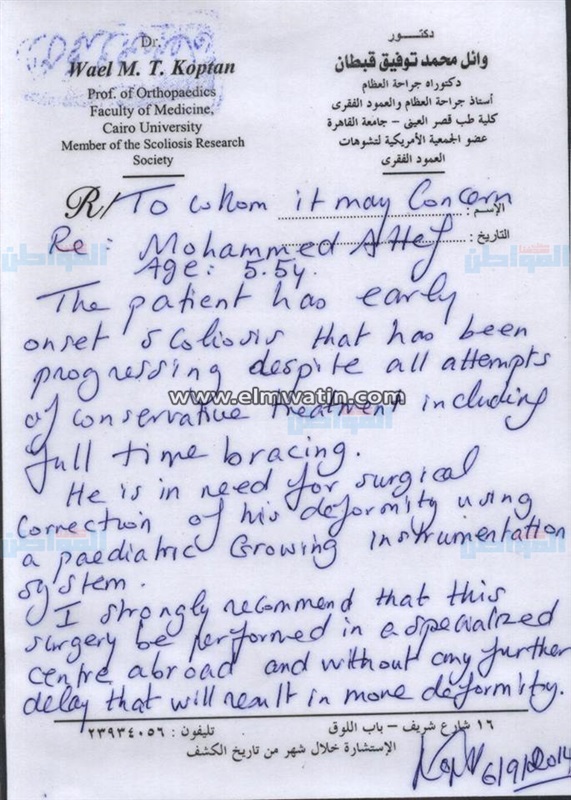 Dr.
Wael M. T. Koptan
Prof. of Orthopaedics
Faculty of Medicine,
Cairo University
Member of the Scoliosis Research
Society
دكتـــور
وائل محمد توفيق قبطان
دكتوراه جراحة العظام
أستاذ جراحة العظام والعمود الفقرى
كلية طب قصر العينى - جامعة القاهرة
عضو الجمعية الأمريكية لتشوهات
العمود الفقرى
R/ To whom it may Concern
الإسم :
Re: Mohammed Attef
التاريخ :
Age: 5.5y.
The patient has early
onset scoliosis that has been
progressing despite all attempts
of conservative treatment including
full time bracing.
He is in need for surgical
correction of his deformity using
a paediatric Growing instrumentation
system.
I strongly recommend that this
surgery be performed in a specialized
centre abroad and without any further
delay that will result in more deformity.
١٦ شارع شريف - باب اللوق
تليفون : ٢٣٩٣٤٠٥٦
الإستشارة خلال شهر من تاريخ الكشف
6/9/2014
www.elmwatin.com
المواطن
المواطن
المواطن
المواطن
المواطن